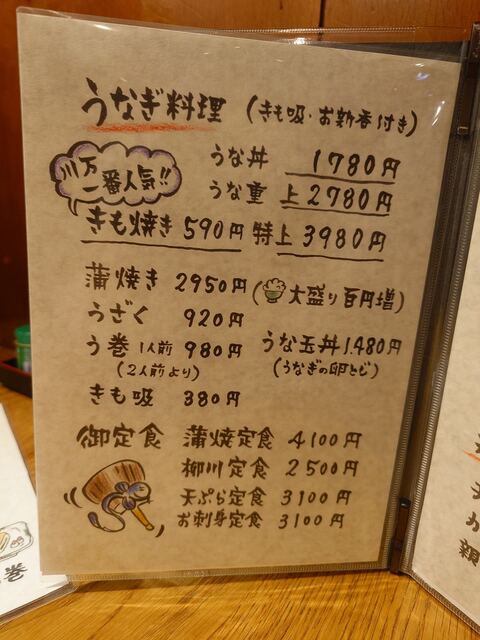 うなぎ料理 (きも吸・お新香付き)
うな丼 1780円
一番人気!!
うな重 上2780円
きも焼き 590円 特上3980円
蒲焼き 2950円 (大盛り百円増)
うざく 920円
う巻 1人前 980円 うな玉丼 1.480円
(2人前より) (うなぎの卵とじ)
きも吸 380円
御定食 蒲焼定食 4100円
柳川定食 2500円
天ぷら定食 3100円
お刺身定食 3100円
巻
親